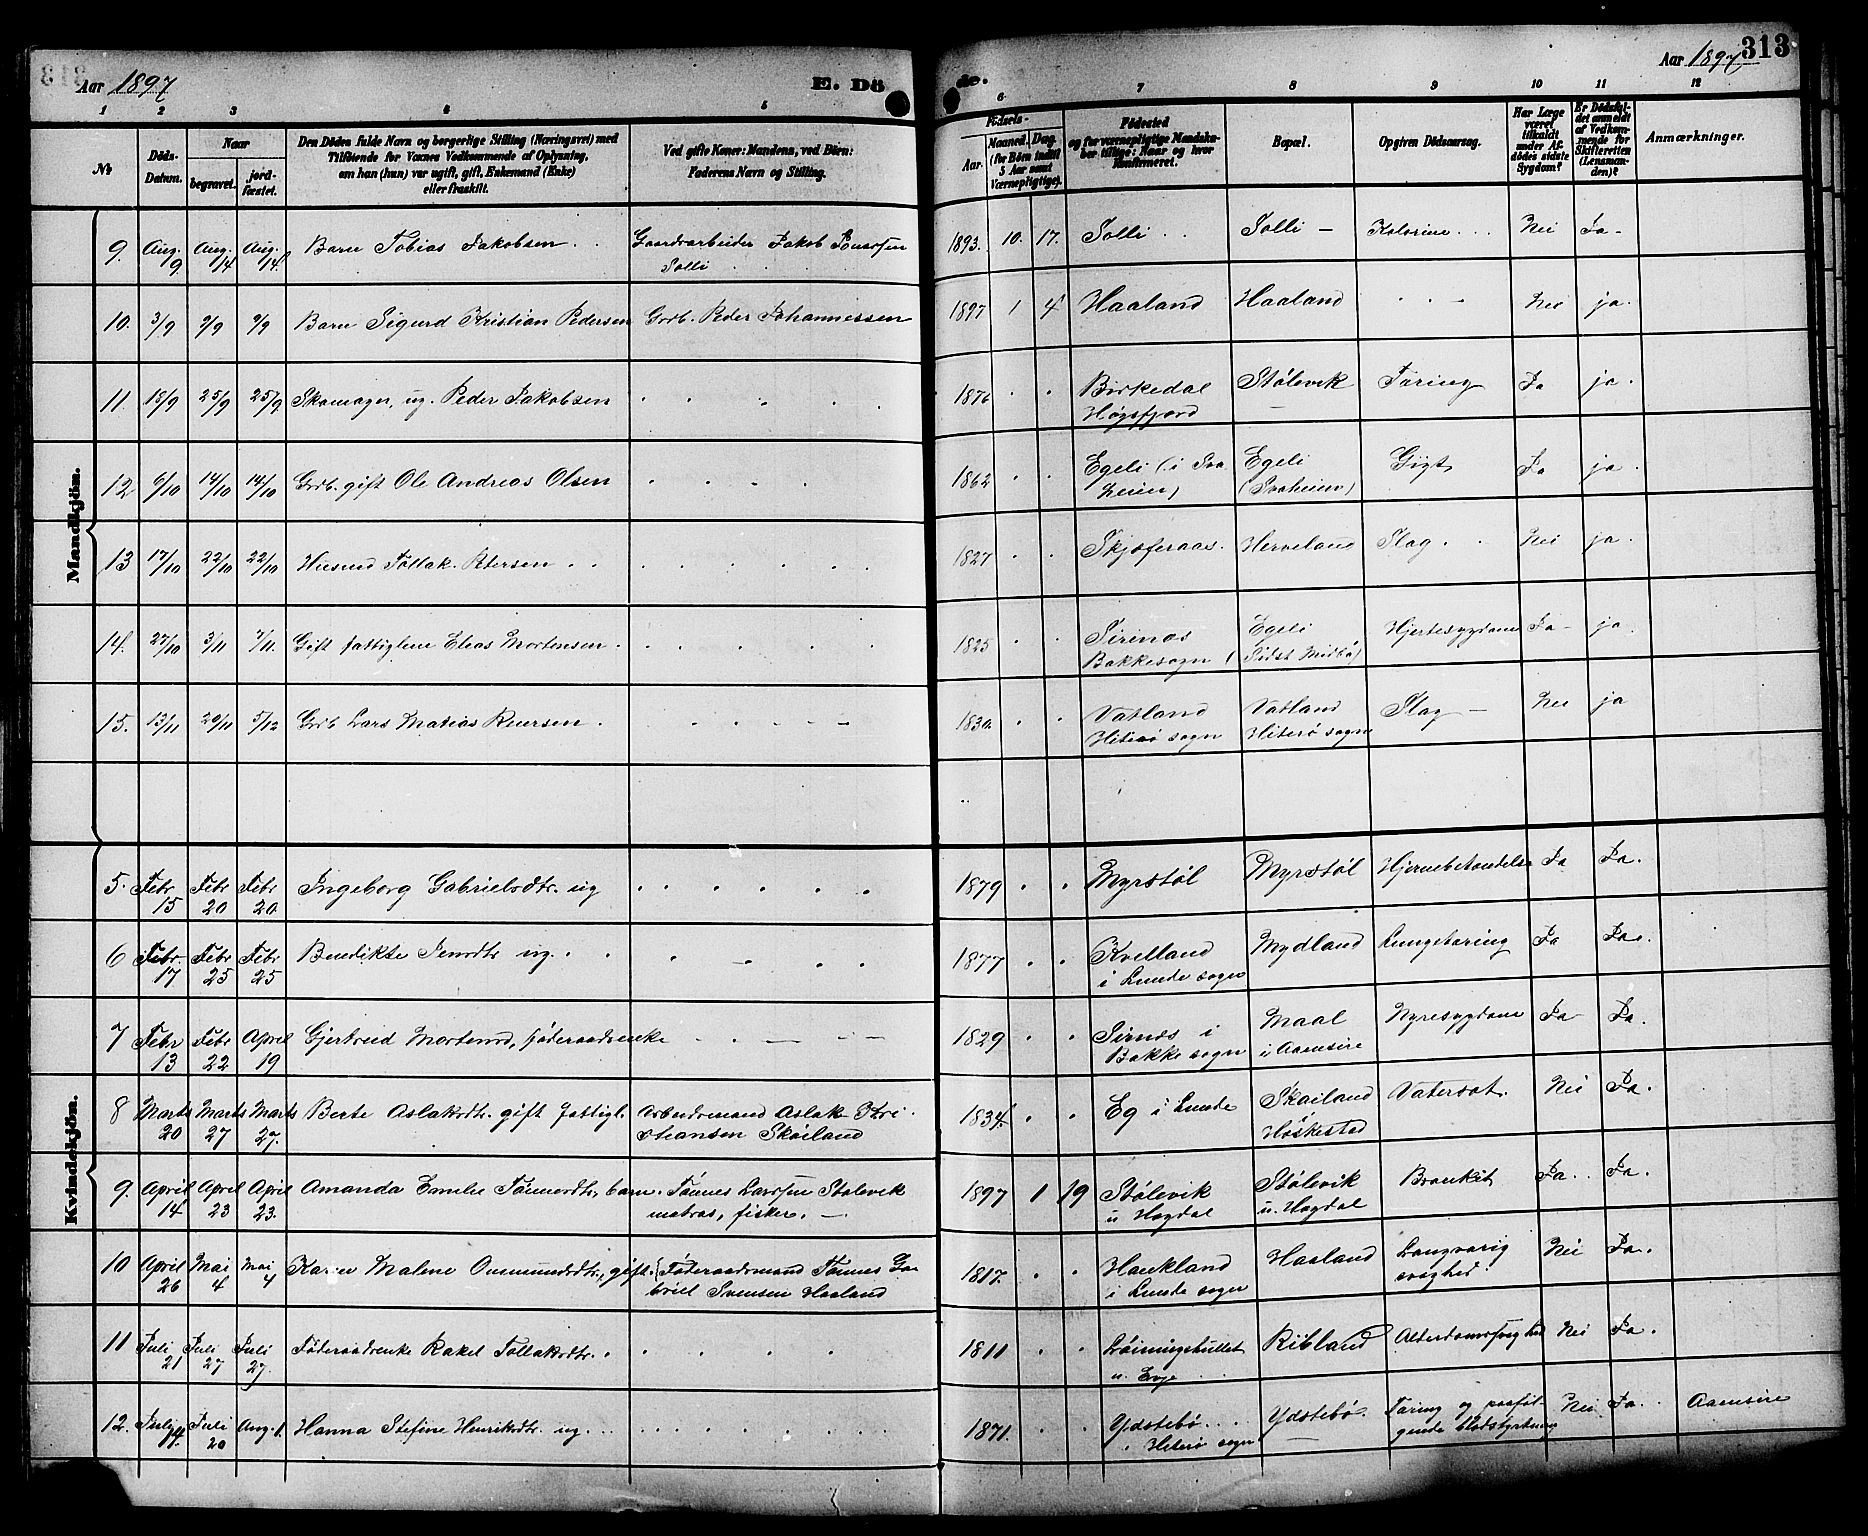 Aar 1897
E. Dö
de.
Aar 1897
313
1 2 3 4 5 6 7 8 9 10 11 12
№
Døds-Datum.
Naar
begravet.
jord-fæstet.
Den Dödes fulde Navn og borgerlige Stilling (Næringsvei) med
Tilföiende for Voxnes Vedkommende af Oplysning,
om han (hun) var ugift, gift, Enkemand (Enke)
eller fraskilt.
Ved gifte Koner: Mandens, ved Börn:
Faderens Navn og Stilling.
Födsels-
Aar.
Maaned. Dag
(for Börn indtil
5 Aar samt
Værnepligtige).
Födested
og for værnepligtige Mandska-
ber tillige: Naar og hvor
konfirmeret.
Bopæl.
Opgiven Dödsaarsag.
Har Læge
været
tilkaldt
under Af-
dödes sidste
Sygdom?
Er Dödsfal-
det anmeldt
af Vedkom-
mende for
Skifteretten
(Lensman-
den)?
Anmærkninger.
Mandkjön.
9. Aug. 9 Aug. 14 Aug. 14. Barn Tobias Jakobsen Gaardarbeider Jakob Tönnesen
Solli
1893. 10. 17. Solli Solli – Kolerine Nei Ja.
10. 3/9 9/9 9/9 Barn Sigurd Kristian Pedersen Grb. Peder Johannessen 1897 1 4 Haaland Haaland Nei ja.
11. 18/9 25/9 25/9 Skomager, ug. Peder Jakobsen 1876 Birkedal
Høgsfjord
Stølevik Tæring Ja ja.
12 6/10 14/10 14/10 Grb. gift Ole Andreas Olsen 1862 Egeli (i Svaheien)
Egeli
(Svaheien)
Gigt Ja ja.
13 17/10 22/10 22/10 Husmd Tollak Petersen 1827 Skjoferaas. Herveland Slag. Nei ja.
14. 27/10 3/11 7/11. Gift fattiglem Elias Mortensen 1825 Sirenæs
Bakkesogn
Egeli
(Sidst Midbö)
Hjertesygdom Ja – ja.
15. 13/11 20/11 5/12 Grb Lars Matias Reiersen 1830. Vatland
Hiterø sogn
Vatland
Hiterø sogn
Slag – Nei ja
Kvindekjön.
5. Febr 15 Febr 20 Febr 20 Ingeborg Gabrielsdtr. ug 1879 Myrstøl Myrstøl Hjernebetændelse Ja Ja.
6 Febr. 17 Febr 25 Febr 25 Benedikte Jensdtr ug. 1877 Kvelland
i Lunde sogn
Mydland Lungetæring Ja Ja.
7 Febr 13 Febr 22 April 19 Gjertrud Mortensd, föderaadsenke 1829 Sirnes i
Bakke sogn
Maal
i Aamsire
Nyresygdom Ja Ja.
8 Marts 20 Marts 27 Marts 27. Berte Aslaksdtr. gift fattigl. Arbeidsmand Aslak Kri-
stiansen Skåiland
1834. Eg i Lunde Skailand
Høskested
Vatersot. Nei Ja.
9. April 14 April 23 April 23. Amanda Emelie Tönnesdtr, barn. Tönnes Larssen Stølevik
matros, fisker. –
1897 1 19 Stølevik
u. Hogdal
Stølevik
u. Hogdal
Bronkit Ja.. Ja.
10 April 26 Mai 4 Mai 4 Karen Malene Ommundsdtr, gift. (Föderaadsmand Tönnes Ga-
briel Svensen Haaland
1817. Haukland
i Lunde sogn
Haaland Langvarig
svaghed.
Nei Ja.
11 Juli 21 Juli 27 Juli 27. Föderaadsenke Rakel Tollaksdtr. 1811 Löiningshullet
u. Evje
Ribland Alderdomssvaghed Nei Ja.
12. Juli 14. Juli 20 Aug. 1. Hanna Stefine Henriksdtr. ug. 1871. Ydstebø
i Hiterø sogn
Ydstebø. Tæring og paaföl-
gende blodstyrtning
Nei Ja. Aamsire